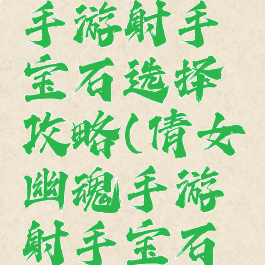 手游射手
宝石选择
攻略(倩女
幽魂手游
射手宝石